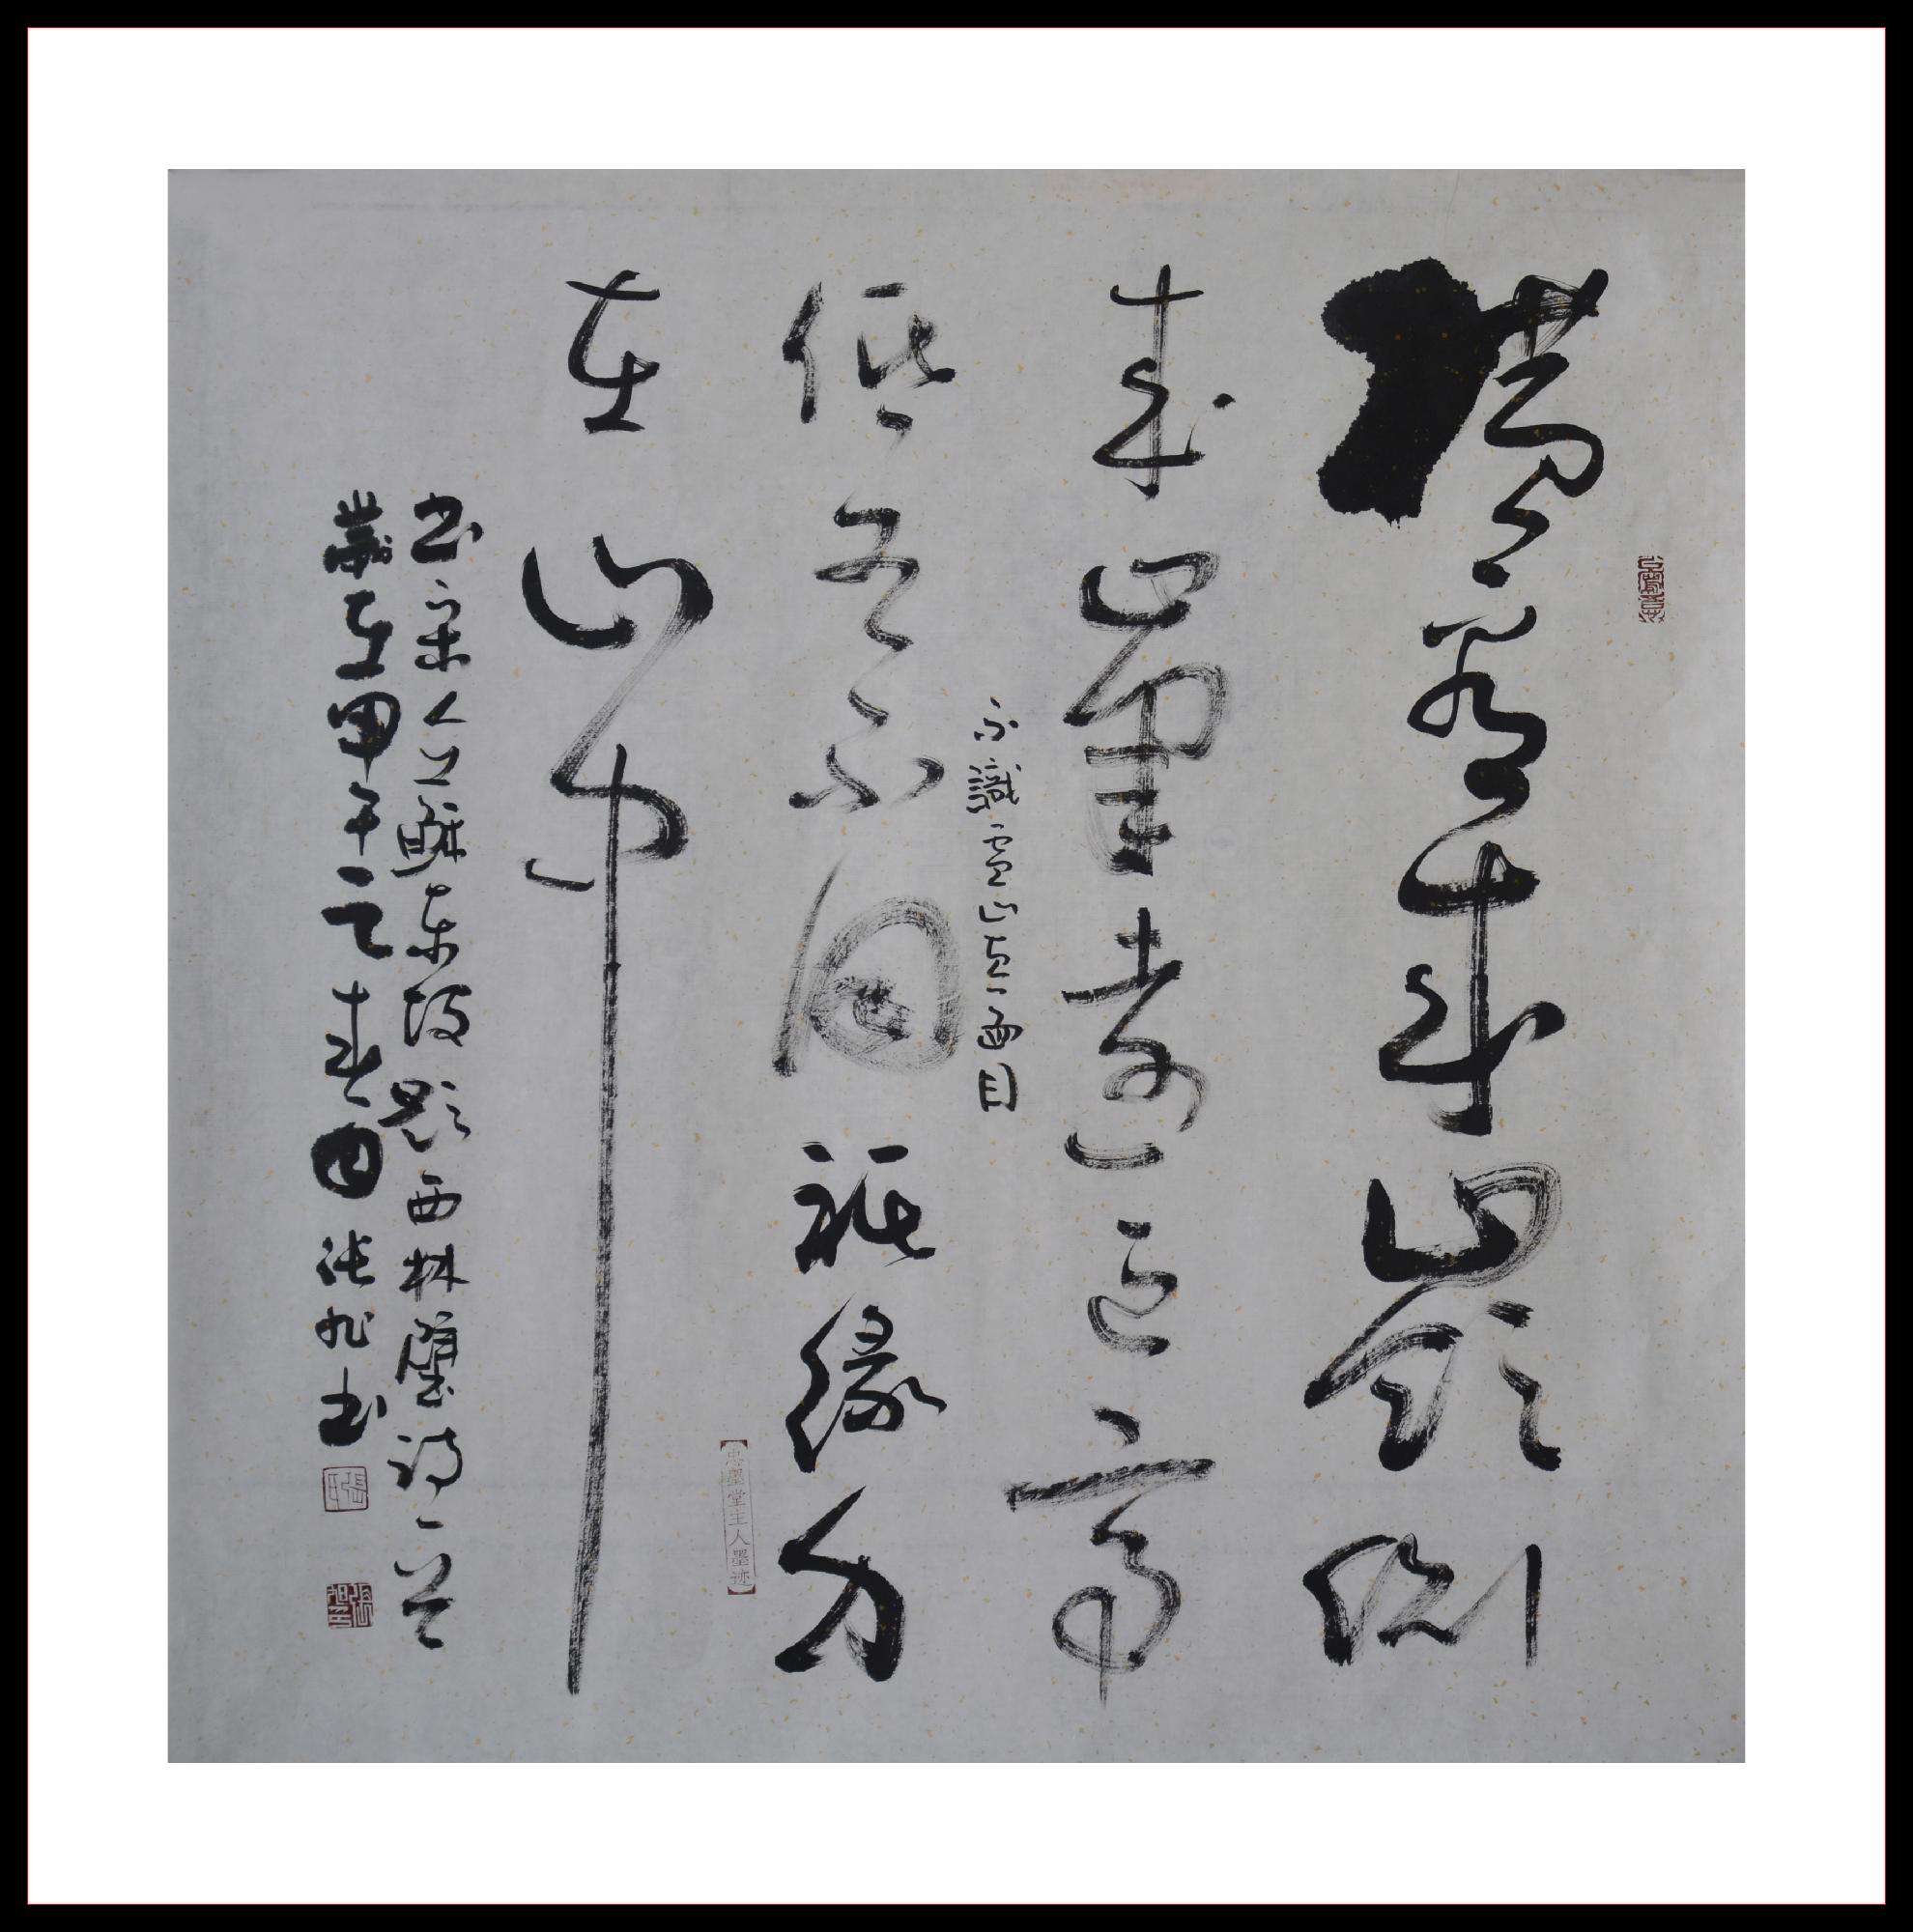 橫看成嶺側
成峯遠近高
不識廬山真面目
低各不同祗緣身
在山中
書宋人蘇東坡題西林壁詩一首
歲在甲午之春張旭書
墨堂主人墨迹